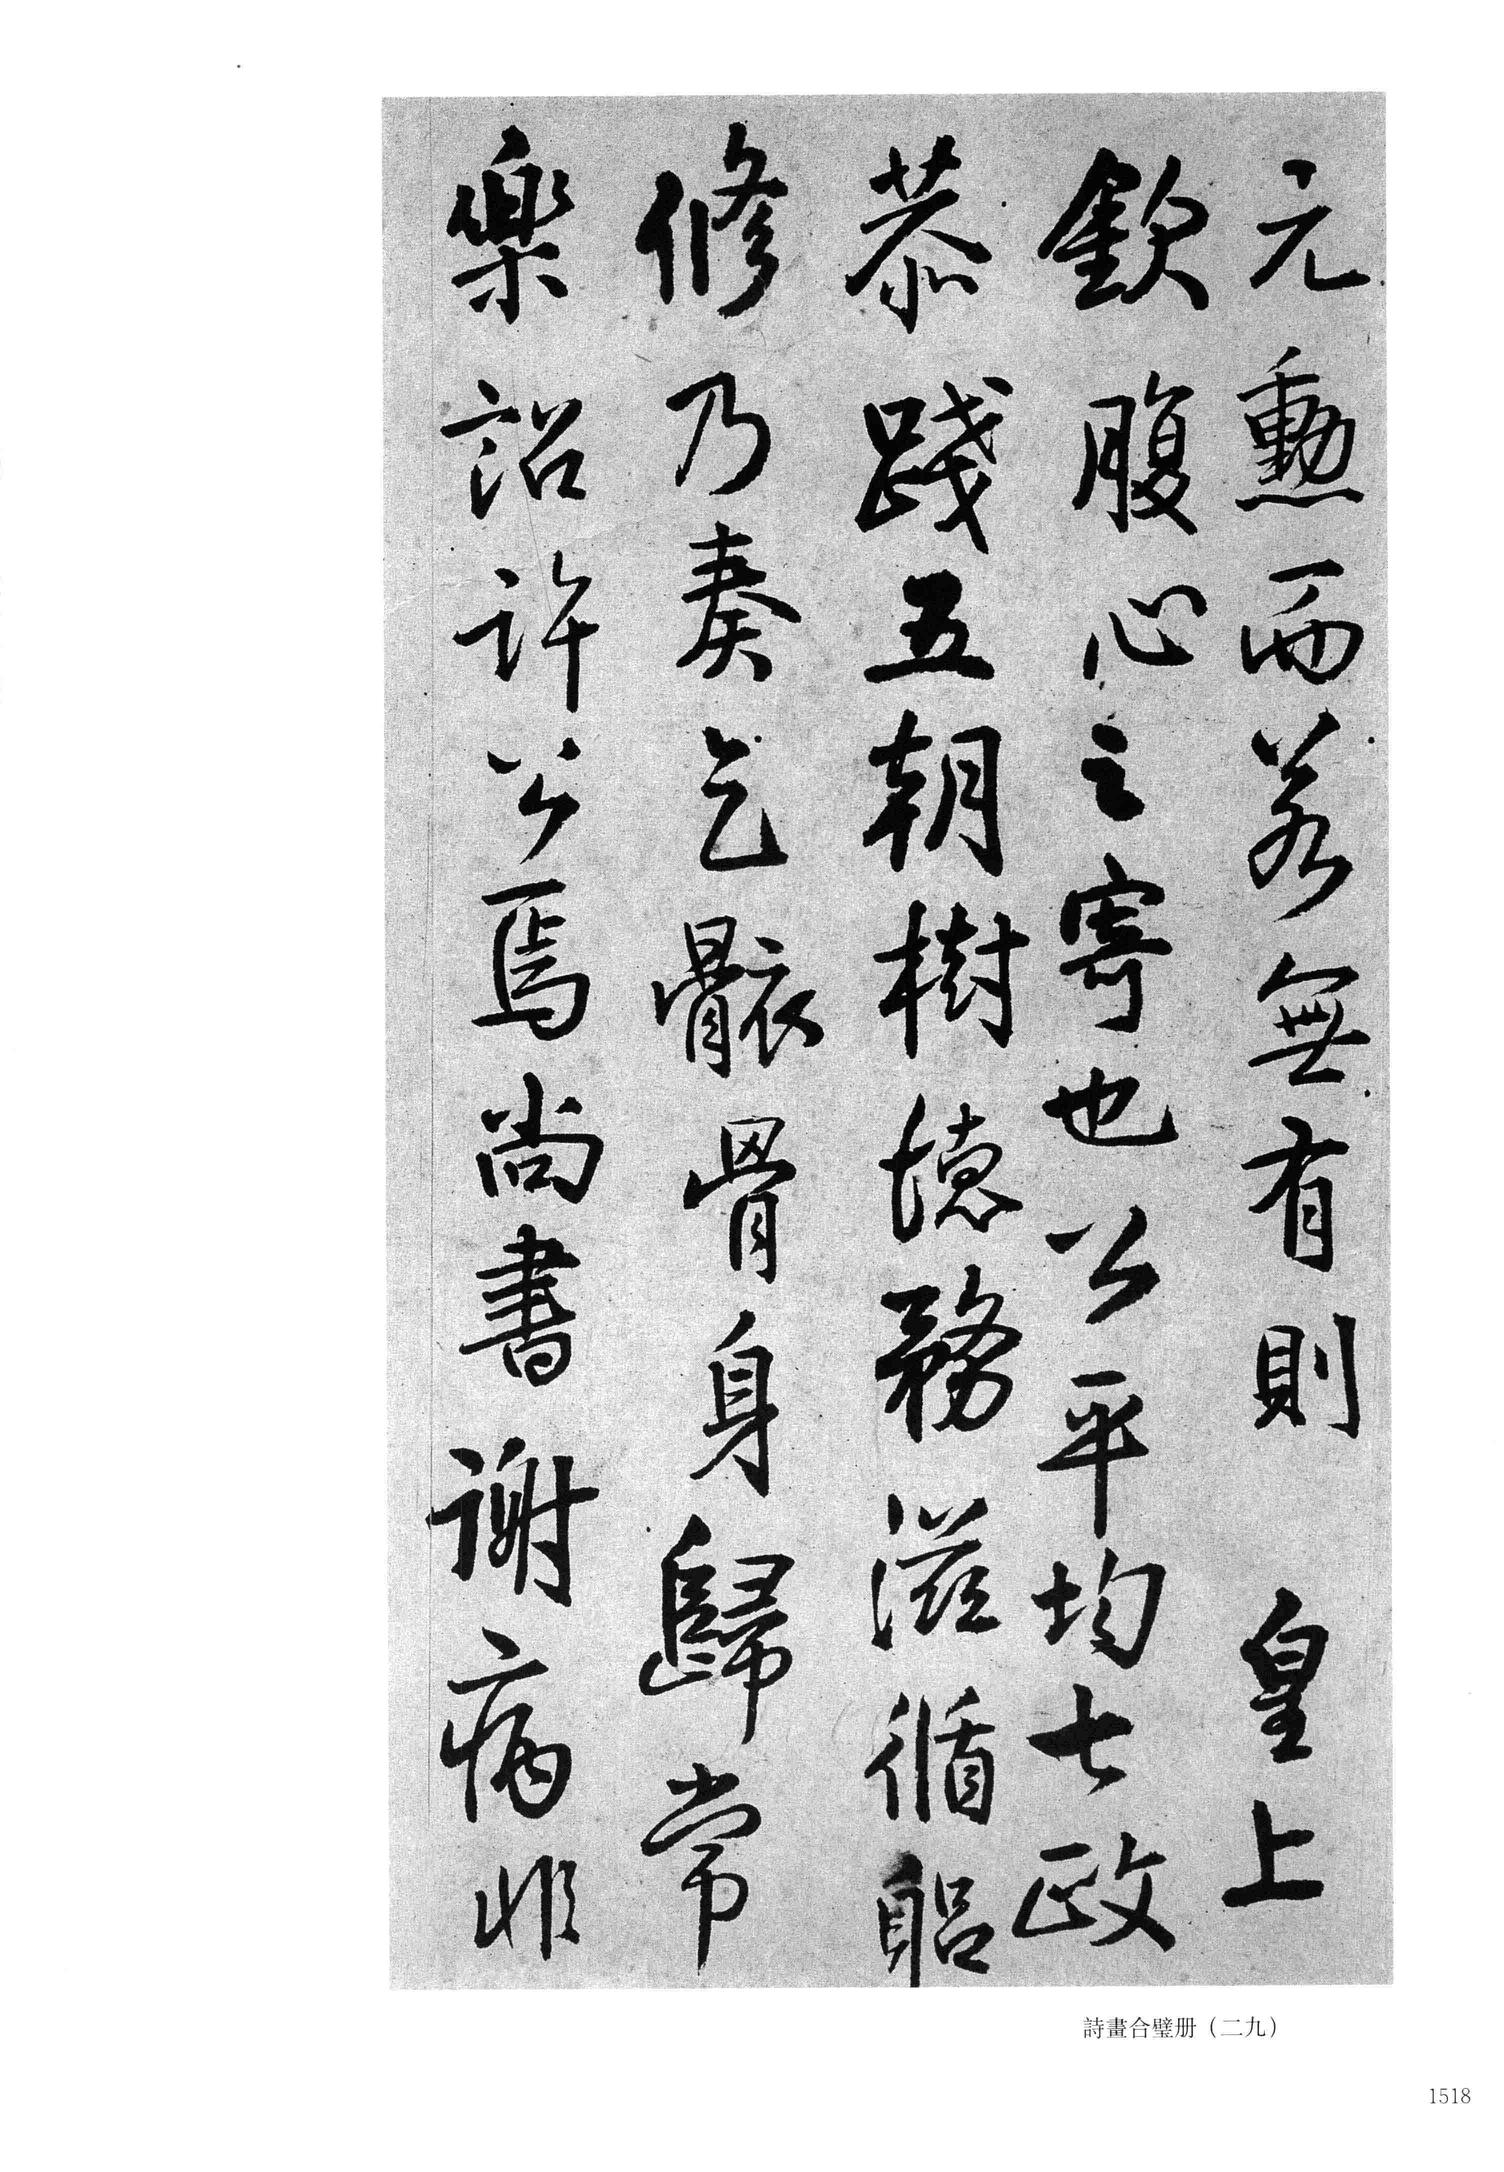 元勳而若無有則　皇上
欽腹心之寄也公平均七政
恭踐五朝樹德務滋循躳
修乃奏乞骸骨身歸常
樂詔許公焉尚書謝病非
詩畫合璧册（二九）
1518